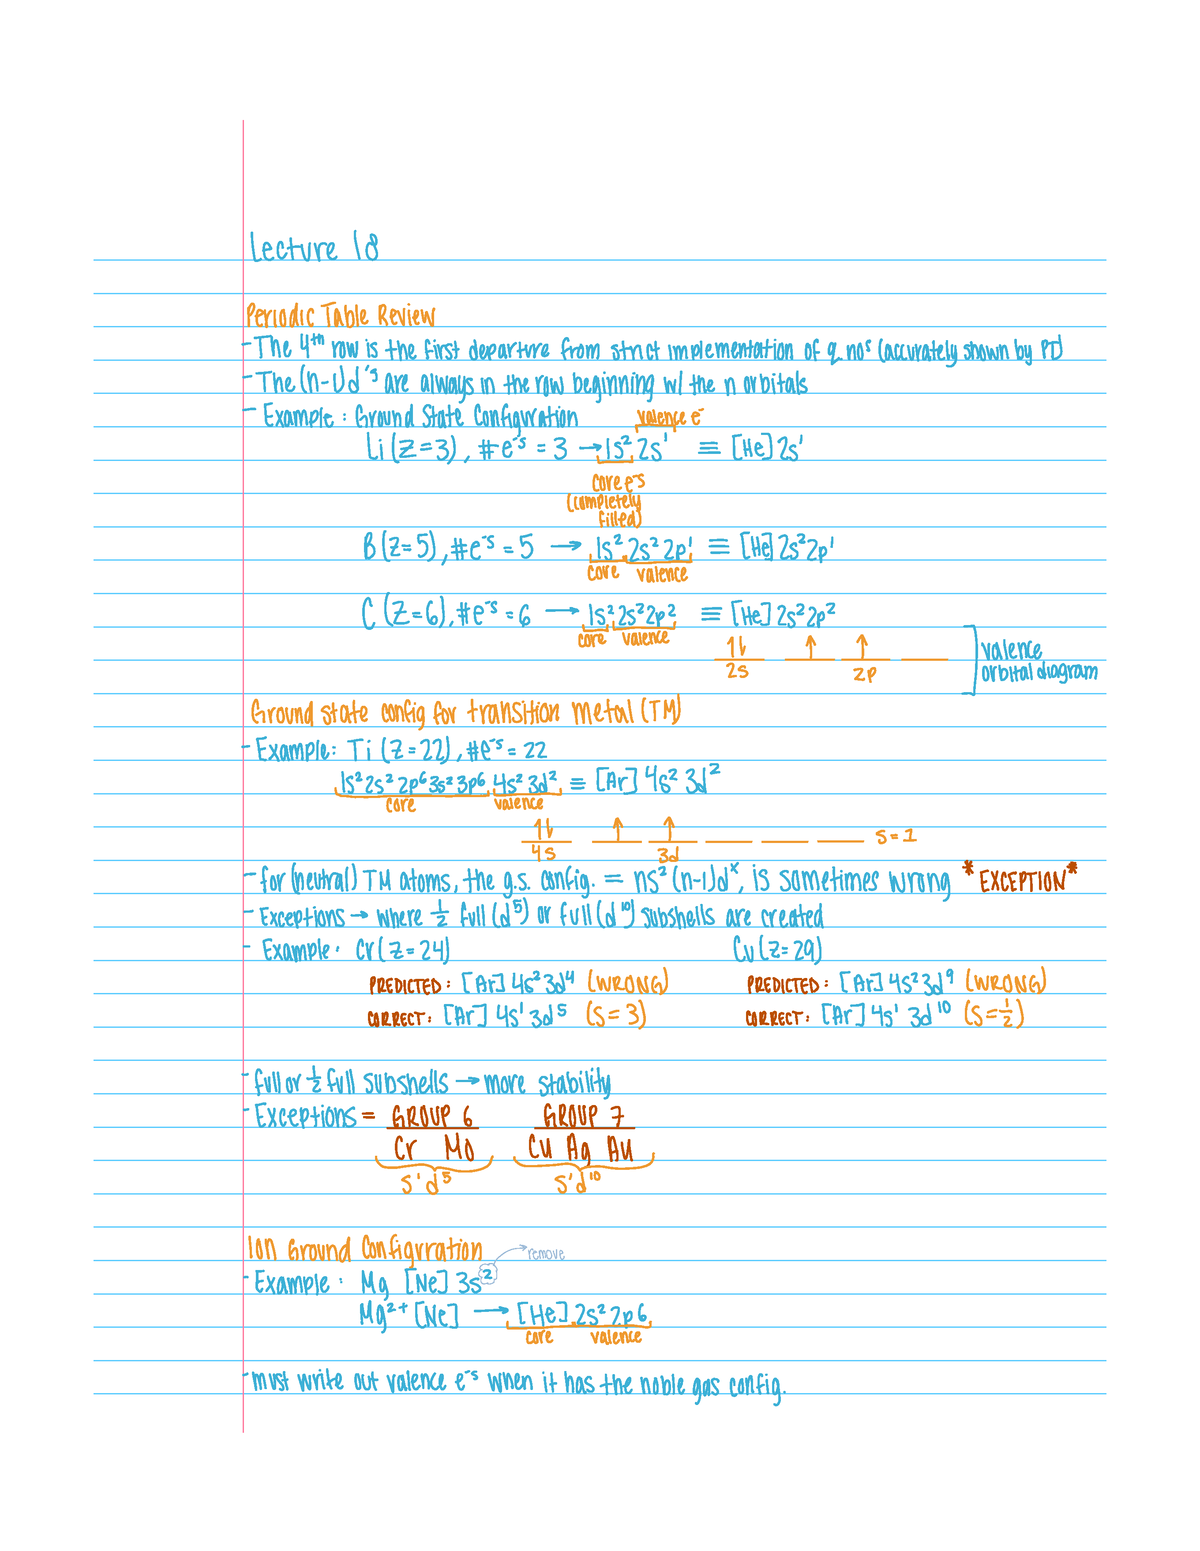 Lecture 18
Periodic Table Review
- The 4th row is the first departure from strict implementation of q. nos (accurately shown by PT)
- The (n-1)d's are always in the row beginning w/ the n orbitals
- Example: Ground State Configuration
valence e⁻
Li (Z=3), #e⁻s = 3 → 1s² 2s¹ ≡ [He] 2s¹
core e⁻s
(completely
filled)
B (Z=5), #e⁻s = 5 → 1s² 2s² 2p¹ ≡ [He] 2s² 2p¹
core valence
C (Z=6), #e⁻s = 6 → 1s² 2s² 2p² ≡ [He] 2s² 2p²
core valence
↑↓ ↑ ↑
2s 2p
valence
orbital diagram
Ground state config for transition metal (TM)
- Example: Ti (Z=22), #e⁻s = 22
1s² 2s² 2p⁶ 3s² 3p⁶ 4s² 3d² ≡ [Ar] 4s² 3d²
core valence
↑↓ ↑ ↑ S=1
4s 3d
- for (neutral) TM atoms, the g.s. config. = ns² (n-1)dˣ, is sometimes wrong *EXCEPTION*
- Exceptions → where ½ full (d⁵) or full (d¹⁰) subshells are created
- Example: Cr (Z=24) Cu (Z=29)
PREDICTED: [Ar] 4s² 3d⁴ (WRONG) PREDICTED: [Ar] 4s² 3d⁹ (WRONG)
CORRECT: [Ar] 4s¹ 3d⁵ (S=3) CORRECT: [Ar] 4s¹ 3d¹⁰ (S=½)
- full or ½ full subshells → more stability
- Exceptions = GROUP 6 GROUP 7
Cr Mo Cu Ag Au
s¹d⁵ s¹d¹⁰
Ion Ground Configuration
remove
- Example: Mg [Ne] 3s²
Mg²⁺ [Ne] → [He] 2s² 2p6
core valence
- must write out valence e⁻s when it has the noble gas config.